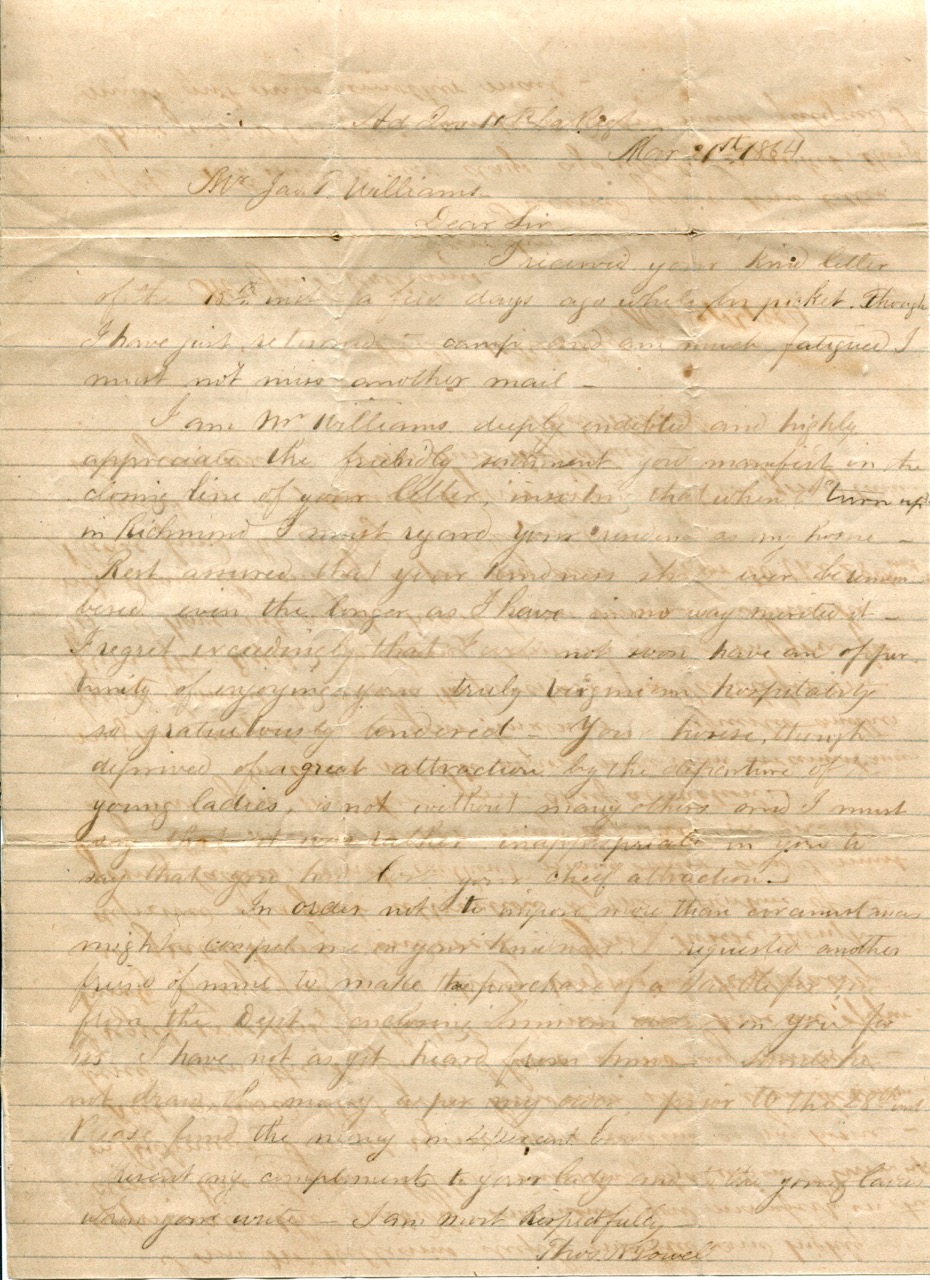 Hd Qrs 10th Fla Regt
Mar 21st 1864
Mr Jas. T. Williams
Dear Sir
I received your kind letter
of the 15th inst a few days ago while on picket. Though
I have just returned to camp and am much fatigued I
must not miss another mail –
I am Mr Williams deeply indebted and highly
appreciate the friendly sentiment you manifest in the
closing line of your letter, that when I "turn up"
in Richmond I must regard your residence as my home –
Rest assured that your kindness shall ever be remem
bered even the longer as I have in no way merited it –
I regret exceedingly that I will not soon have an oppor
tunity of enjoying your truly Virginian hospitality
so gratuitously tendered – Your house, though
deprived of a great attraction by the departure of
young ladies, is not without many others and I must
say that it was rather inappropriate in you to
say that you had lost your chief attraction. –
In order not to impose more than circumstances
might compel me on your kindness I requested another
friend of mine to make the purchase of a saddle for me
from the Dept. enclosing him an order on you for
I have not as yet heard from him. Should he
not draw the money as per my order, prior to the 28th inst
Please fund the money in 4 per cent
Present my compliments to your lady and to the young ladies
when you write – I am most Respectfully
Thos. W Powel